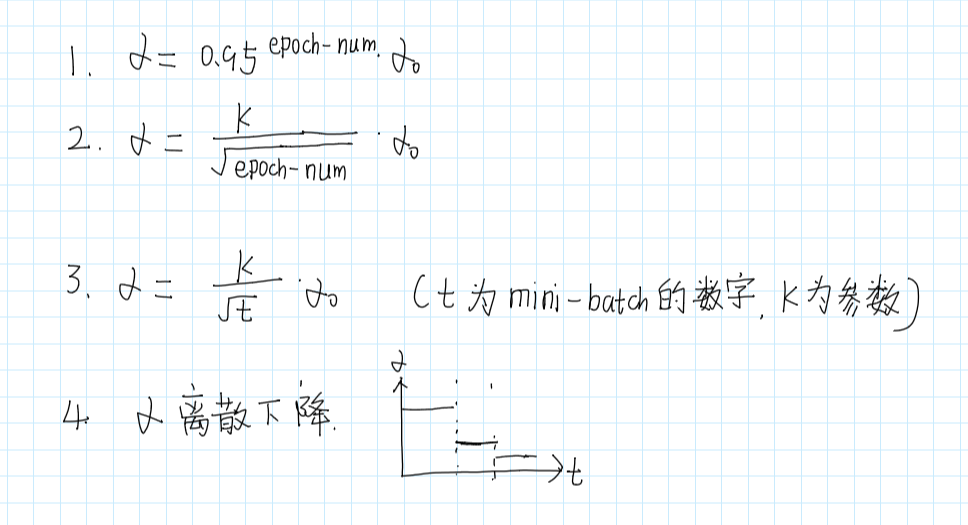 1. α = 0.95^epoch-num · α₀
2. α = k/√epoch-num · α₀
3. α = k/√t · α₀ (t为mini-batch的数字, k为参数)
4. α 离散下降.
α
t